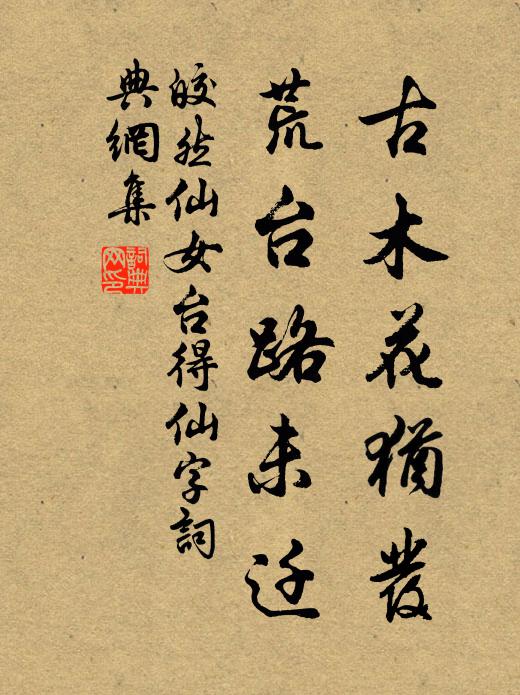 古木花犹發
荒台路未迁
皎然仙女台得仙字詞
典網集
詞典网印